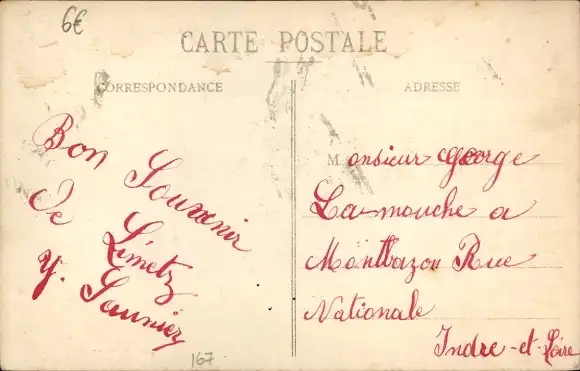 6€
CARTE POSTALE
CORRESPONDANCE
ADRESSE
Bon Souvenir
de Limetz
Y. Saunier
Monsieur George
La-mouche a
Montbazon Rue
Nationale
Indre-et-Loire
167